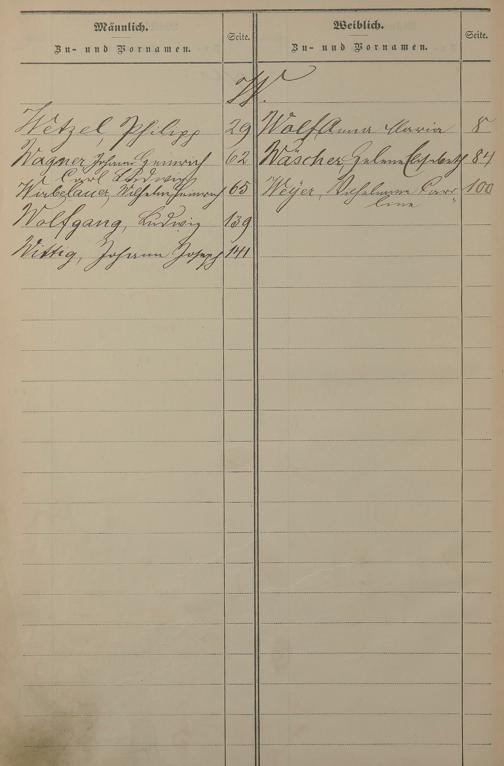 Männlich.
Zu- und Vornamen.
Seite.
Weiblich.
Zu- und Vornamen.
Seite.
W.
Wetzel Philipp 29
Wagner Johann Heinrich 62
Carl Ludwig
Wirbelauer, Wilhelm Heinrich 65
Wolfgang, Ludwig 139
Wittig, Johann Joseph 141
Wolf Anna Maria 8
Wäscher Helene Elisabeth 84
Weyer, Wilhelmine Caro- 100
line